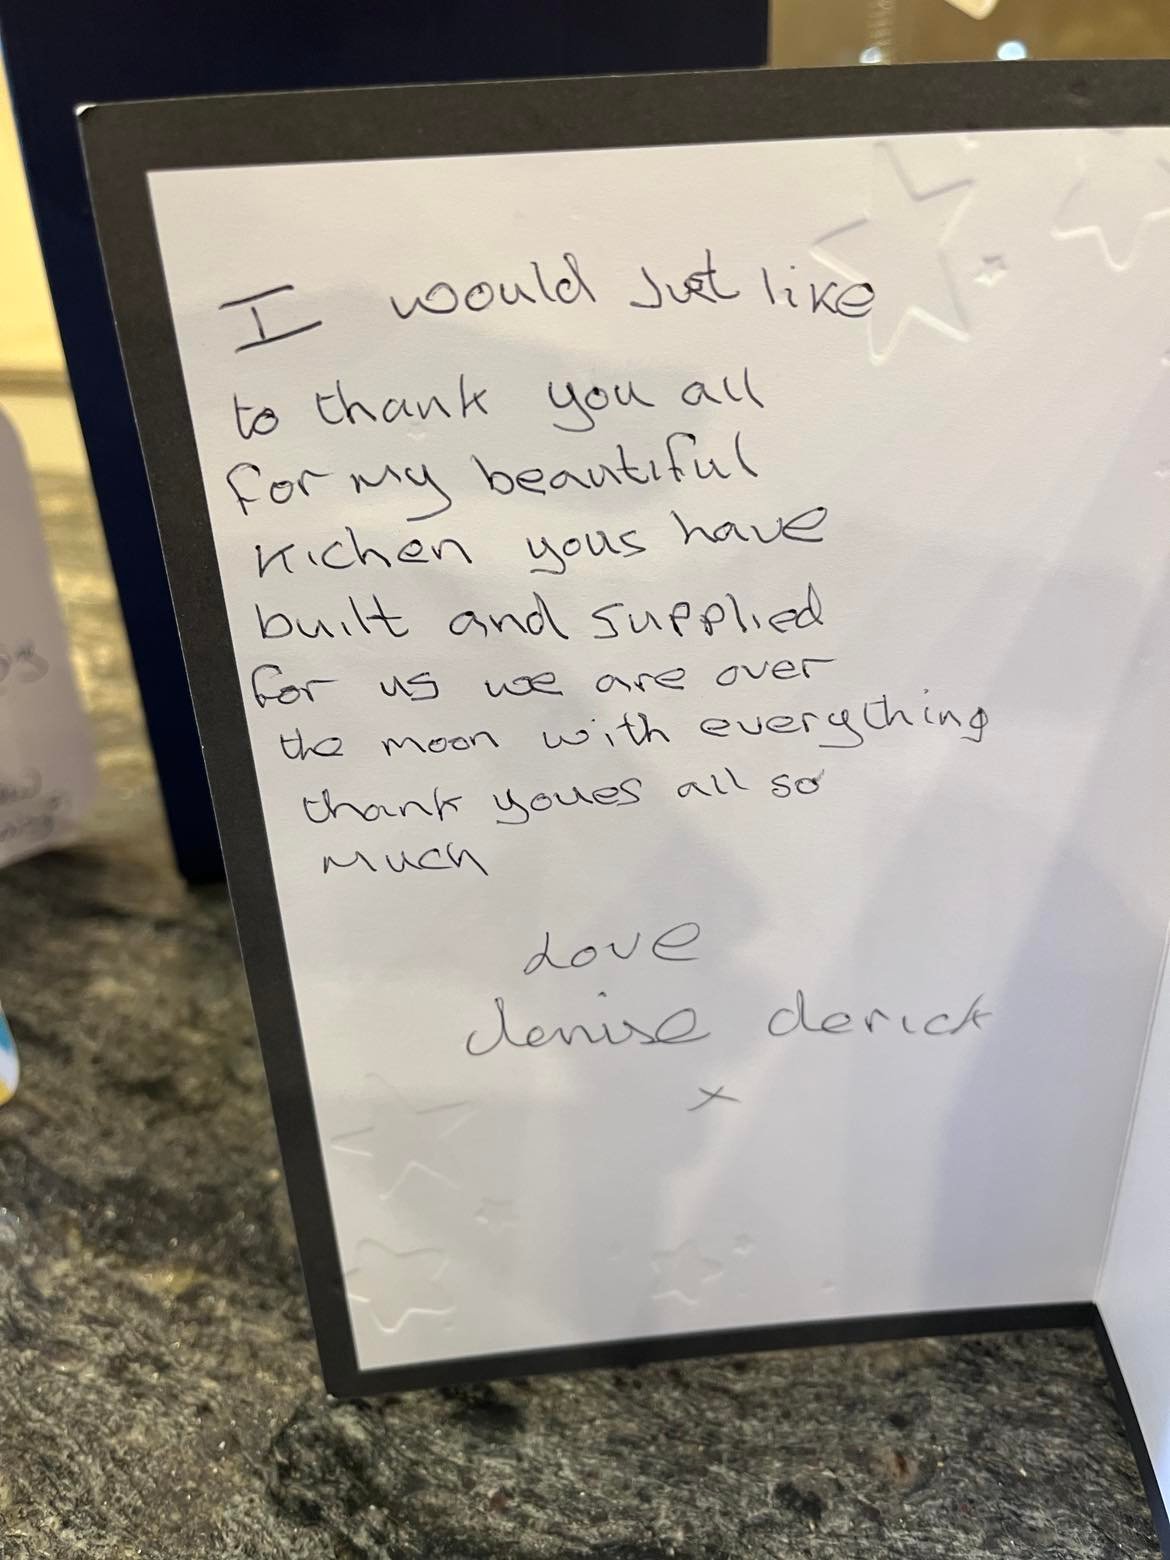 I would Just like
to thank you all
for my beautiful
Kichen yous have
built and supplied
for us we are over
the moon with everything
thank youes all so
much
Love
denise derick
x